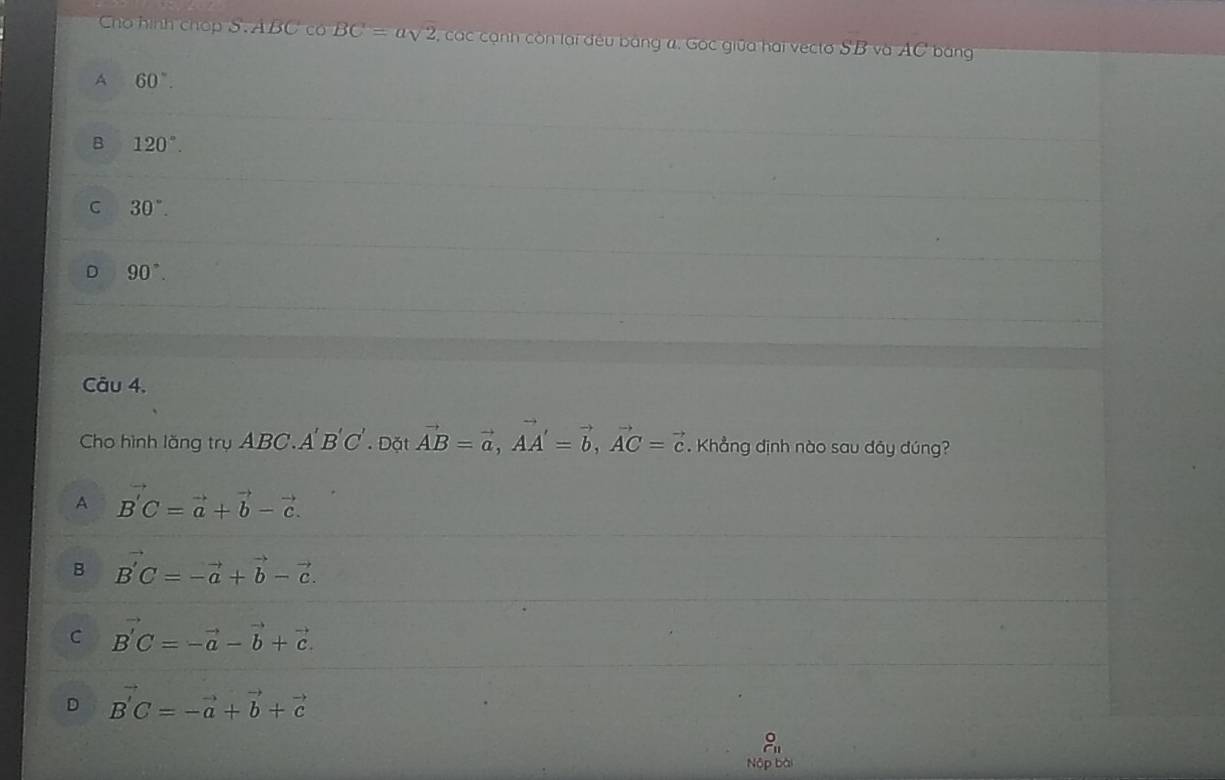 Cho hình chóp S.ABC có BC = a√2, các cạnh còn lại đều bằng a. Góc giữa hai vectơ SB và AC bằng
A 60°.
B 120°.
C 30°.
D 90°.
Câu 4.
Cho hình lăng trụ ABC.A'B'C'. Đặt \vec{AB} = \vec{a}, \vec{AA'} = \vec{b}, \vec{AC} = \vec{c}. Khẳng định nào sau đây đúng?
A \vec{B'C} = \vec{a} + \vec{b} − \vec{c}.
B \vec{B'C} = −\vec{a} + \vec{b} − \vec{c}.
C \vec{B'C} = −\vec{a} − \vec{b} + \vec{c}.
D \vec{B'C} = −\vec{a} + \vec{b} + \vec{c}
Nộp bài